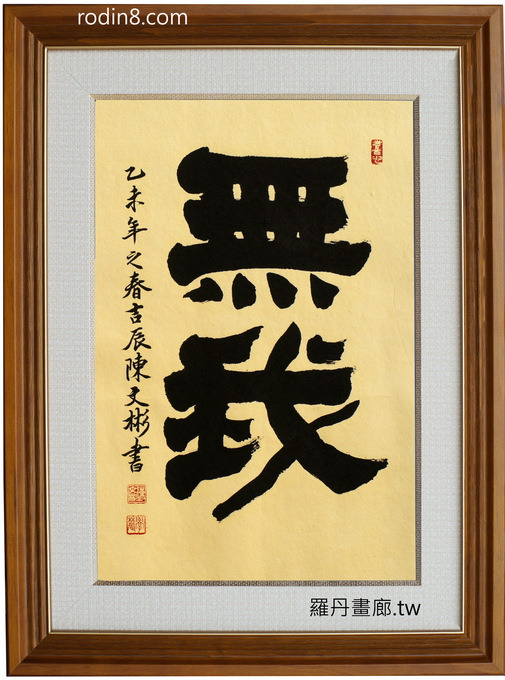 rodin8.com
無我
乙未年之春吉辰陳文彬書
羅丹畫廊.tw